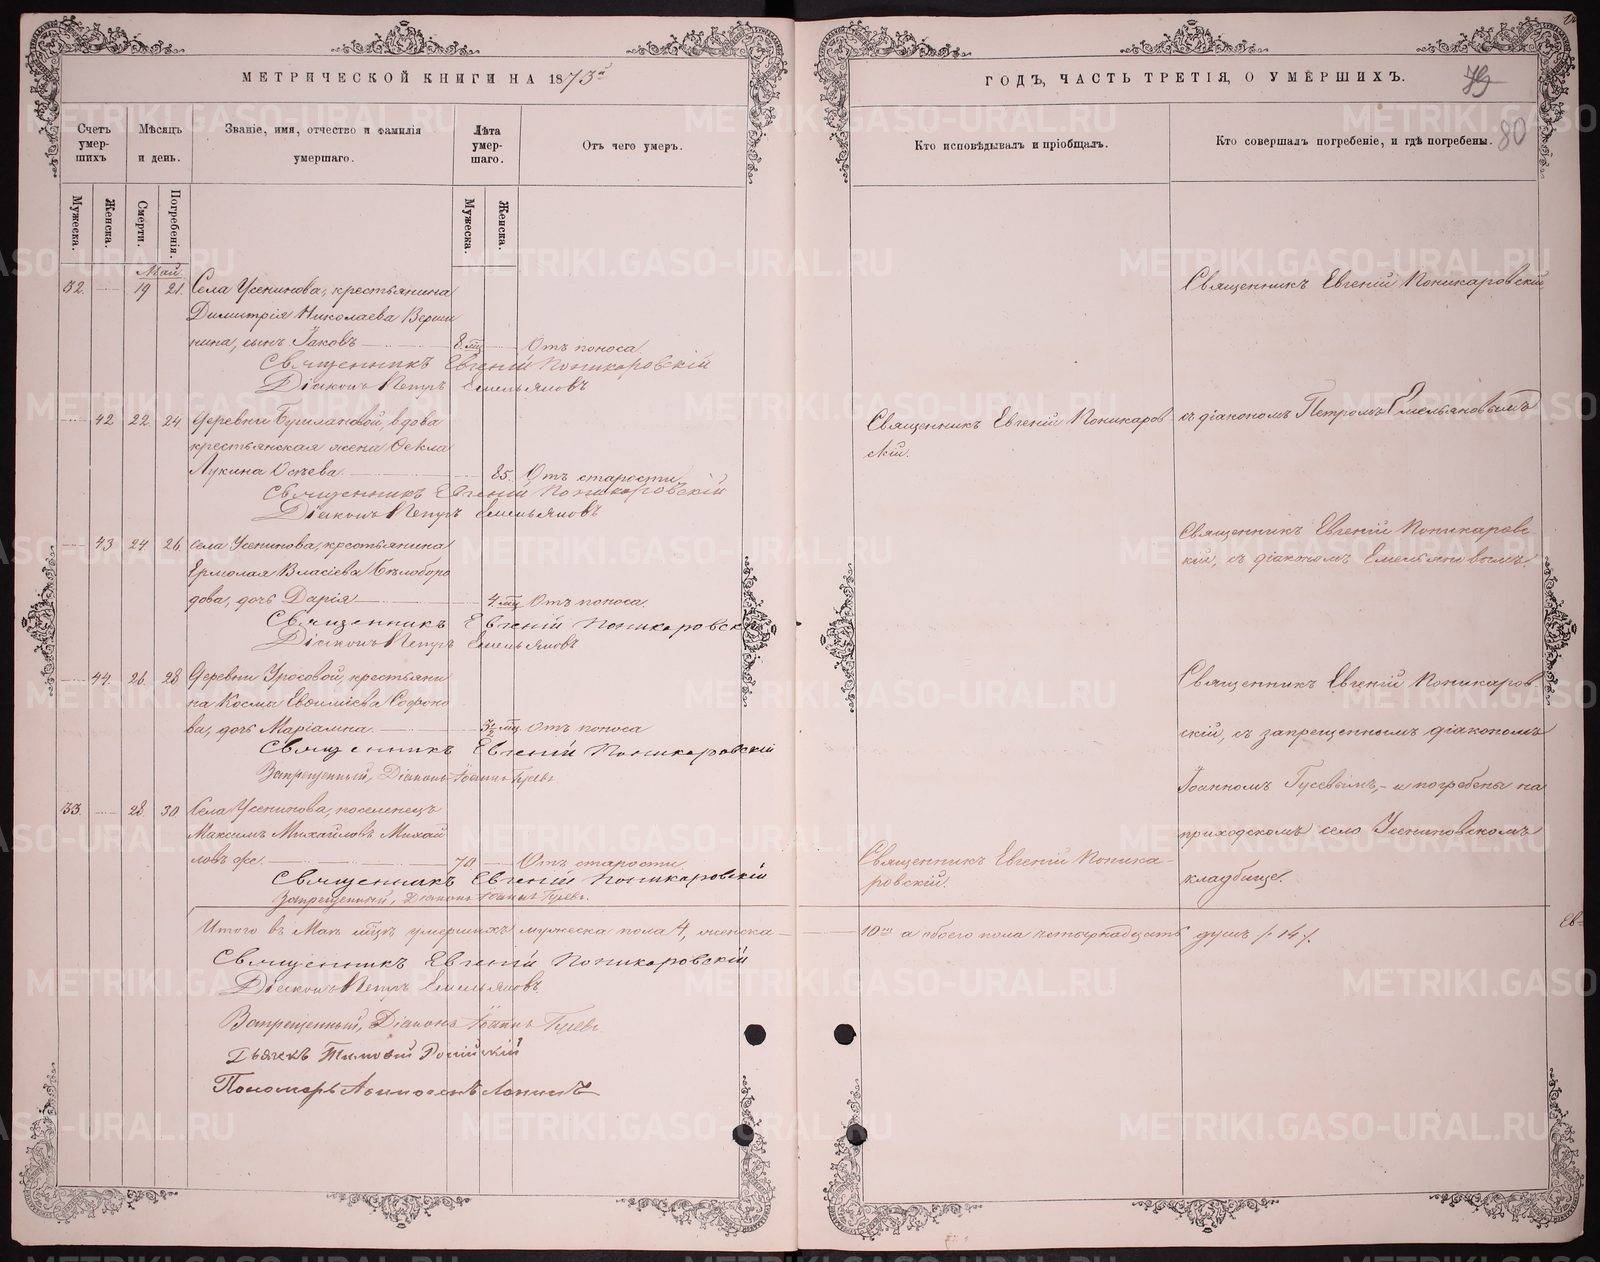 МЕТРИЧЕСКОЙ КНИГИ НА 1873й
Счетъ умер- шихъ
Мѣсяцъ и день.
Званіе, имя, отчество и фамилія умершаго.
Лѣта умер- шаго.
Отъ чего умеръ.
Мужеска.
Женска.
Смерти.
Погребенія.
Мужеска.
Женска.
Май
32. 19 21. Села Усенинова, крестьянина
Димитрія Николаева Верши
нина, сынъ Іаковъ 8. мц Отъ поноса
Священникъ Евгеній Поникаровскій
Діаконъ Петръ Емельяновъ
42 22. 24 Деревни вдова
крестьянская жена Ѳекла
Лукина 85. Отъ старости
Священникъ Евгеній Поникаровскій
Діаконъ Петръ Емельяновъ
43 24. 26. Села Усенинова, крестьянина
Ермолая Власіева Бѣлоборо
дова, дочь Дарія 4 мц Отъ поноса.
Священникъ Евгеній Поникаровскій
Діаконъ Петръ Емельяновъ
44. 26. 28 Деревни Уросовой, крестьяни
на Космы Евѳиміева Софоно
ва, дочь Маріамна. мц. Отъ поноса
Священникъ Евгеній Поникаровскій
Запрещенный, Діаконъ Іоаннъ Гусевъ
33. 28. 30 Села Усенинова, поселенецъ
Максимъ Михайловъ Михай
ловъ 70 Отъ старости
Священникъ Евгеній Поникаровскій
Запрещенный, Діаконъ Іоаннъ Гусевъ.
Итого въ Маѣ мцѣ умершихъ мужеска пола 4, женска
Священникъ Евгеній Поникаровскій
Діаконъ Петръ Емельяновъ
Запрещенный, Діаконъ Іоаннъ Гусевъ
Дьячекъ Тимоѳей
Пономарь
ГОДЪ, ЧАСТЬ ТРЕТІЯ, О УМЕРШИХЪ.
79
80
Кто исповѣдывалъ и пріобщалъ.
Кто совершалъ погребеніе, и гдѣ погребены.
Священникъ Евгеній Поникаровскій
Священникъ Евгеній Поникаров
скій.
съ діакономъ Петромъ Емельяновымъ
Священникъ Евгеній Поникаров
скій, съ діакономъ Емельяновымъ.
Священникъ Евгеній Поникаров
скій, съ запрещеннымъ діакономъ
Іоанномъ Гусевымъ, - и погребены на
приходскомъ село Усениновскомъ
кладбище.
Священникъ Евгеній Поника-
ровскій.
10ть а обоего пола четырнадцать душъ /: 14 /.
Ев-
METRIKI.GASO-URAL.RU